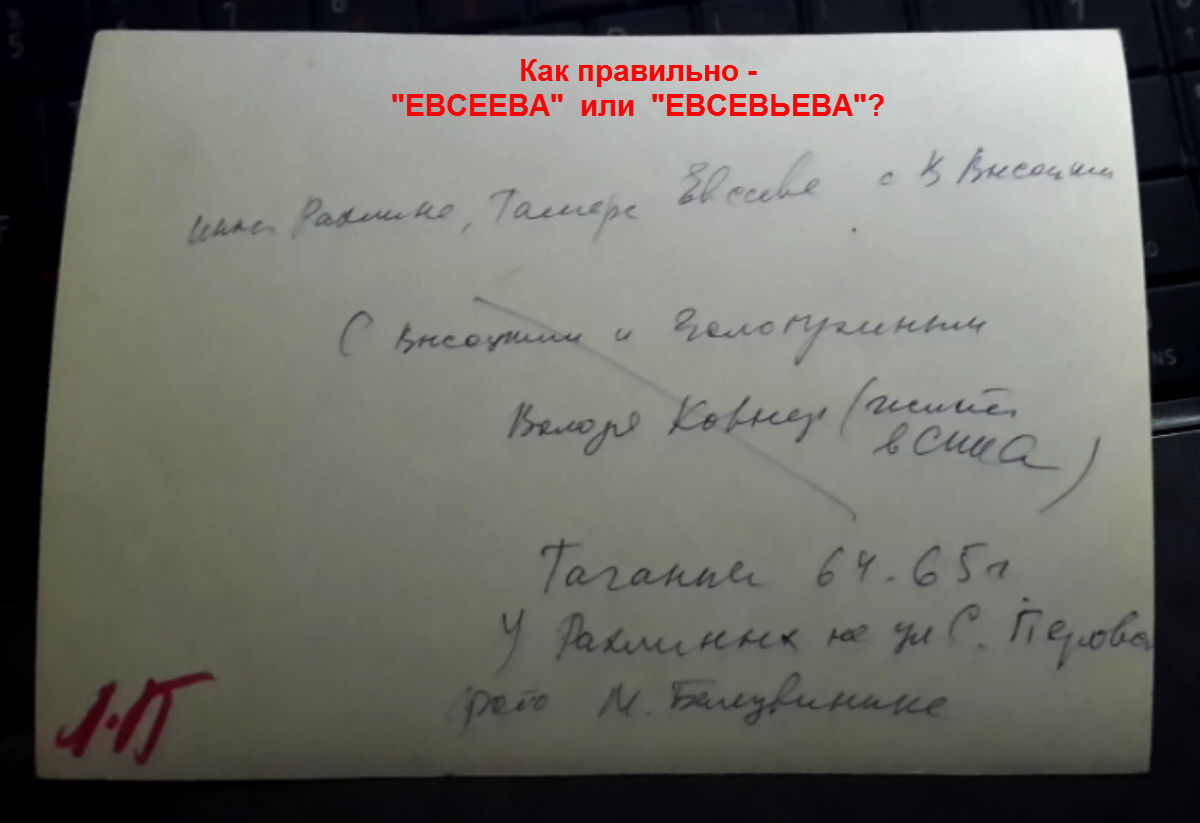 Как правильно -
"ЕВСЕЕВА" или "ЕВСЕВЬЕВА"?
Инна Рахлина, Тамара с В Высоцким
(с Высоцким и Золотухиным
Володя Ковнер (живёт
в США)
Таганка 64-65г
У Рахлиных на ул С. Перовс
фото М.
Л-П